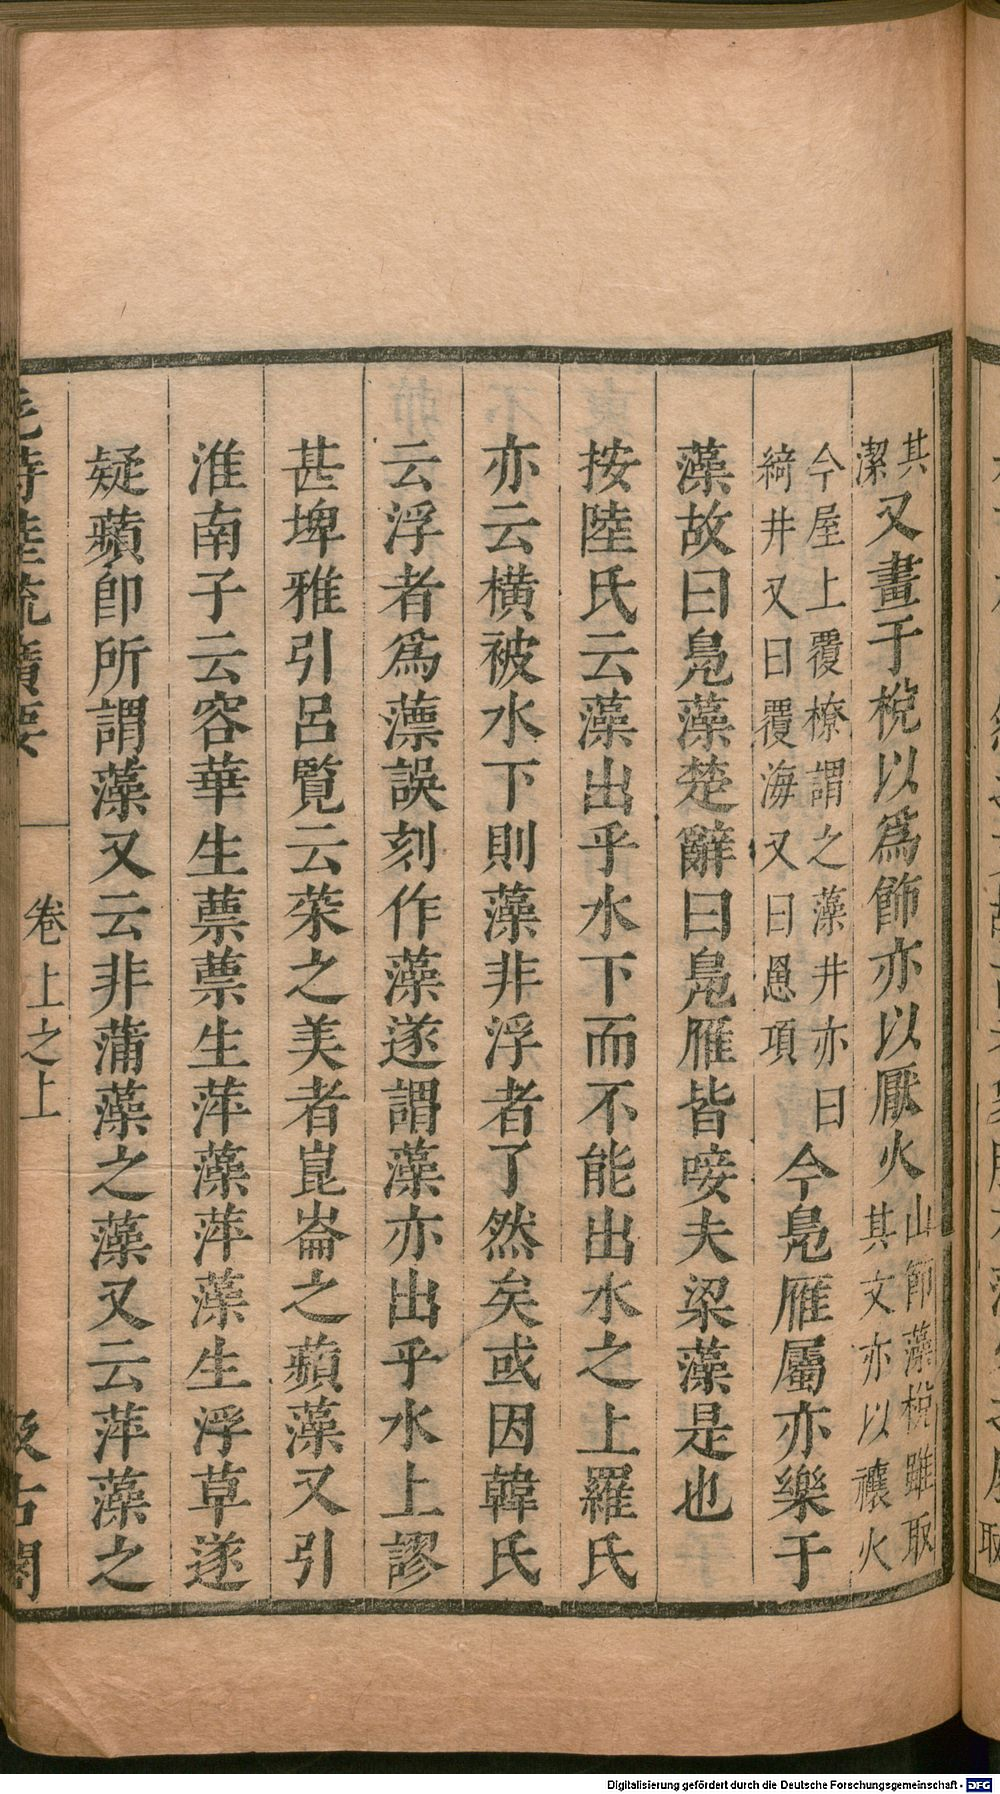 其潔又畫于梲以爲飾亦以厭火山節藻梲雖取其文亦以禳火
今屋上覆橑謂之藻井亦曰綺井又曰覆海又曰罳頂今鳧雁屬亦樂于
藻故曰鳧藻楚辭曰鳧雁皆唼夫梁藻是也
按陸氏云藻出乎水下而不能出水之上羅氏
亦云橫被水下則藻非浮者了然矣或因韓氏
云浮者爲薸誤刻作藻遂謂藻亦出乎水上謬
甚埤雅引呂覧云菜之美者崑崙之蘋藻又引
淮南子云容華生蔈蔈生萍藻萍藻生浮草遂
疑蘋卽所謂藻又云非蒲藻之藻又云萍藻之
毛詩陸疏廣要
卷上之上
汲古閣
取
Digitalisierung gefördert durch die Deutsche Forschungsgemeinschaft - DFG